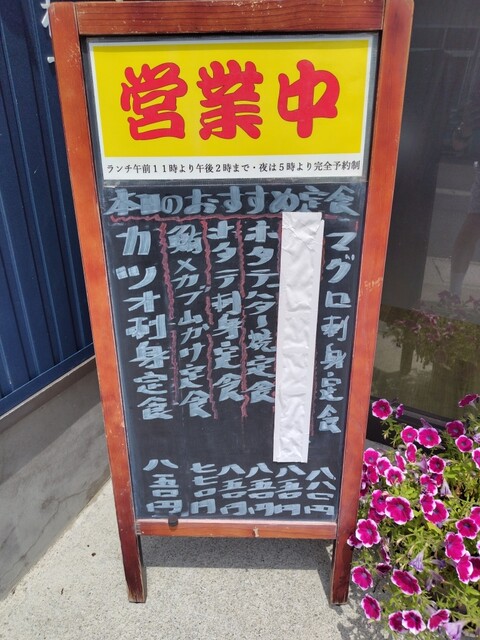 営業中
ランチ午前11時より午後2時まで・夜は5時より完全予約制
本日のおすすめ定食
マグロ刺身定食
ホタテバター焼定食
ホタテ刺身定食
メカブ山かけ定食
カツオ刺身定食
八八〇円
八五〇円
八五〇円
八五〇円
七七〇円
八五〇円